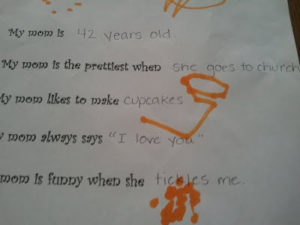 My mom is 42 years old
My mom is the prettiest when she goes to church
My mom likes to make cupcakes
mom always says "I love you"
mom is funny when she tickles me.